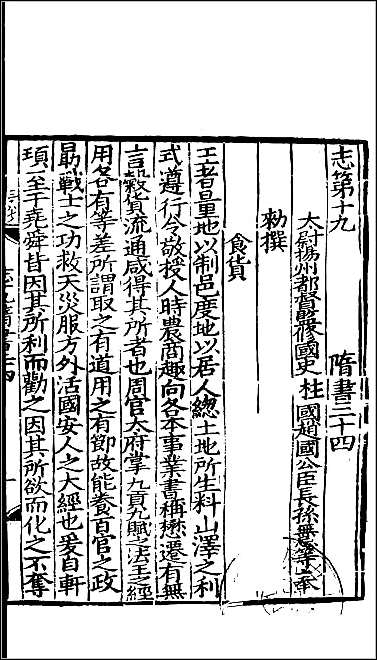 志第十九 隋書二十四
太尉揚州都督監修國史上柱國趙國公臣長孫無忌等奉
勑撰
食貨
王者量地以制邑度地以居人總土地所生料山澤之利
式遵行令敬授人時農商趣向各本事業書稱懋遷有無
言穀貨流通咸得其所者也周官太府掌九貢九賦之法王之經
用各有等差所謂取之有道用之有節故能養百官之政
勗戰士之功救天災服方外活國安人之大經也爰自軒
頊至于堯舜皆因其所利而勸之因其所欲而化之不奪